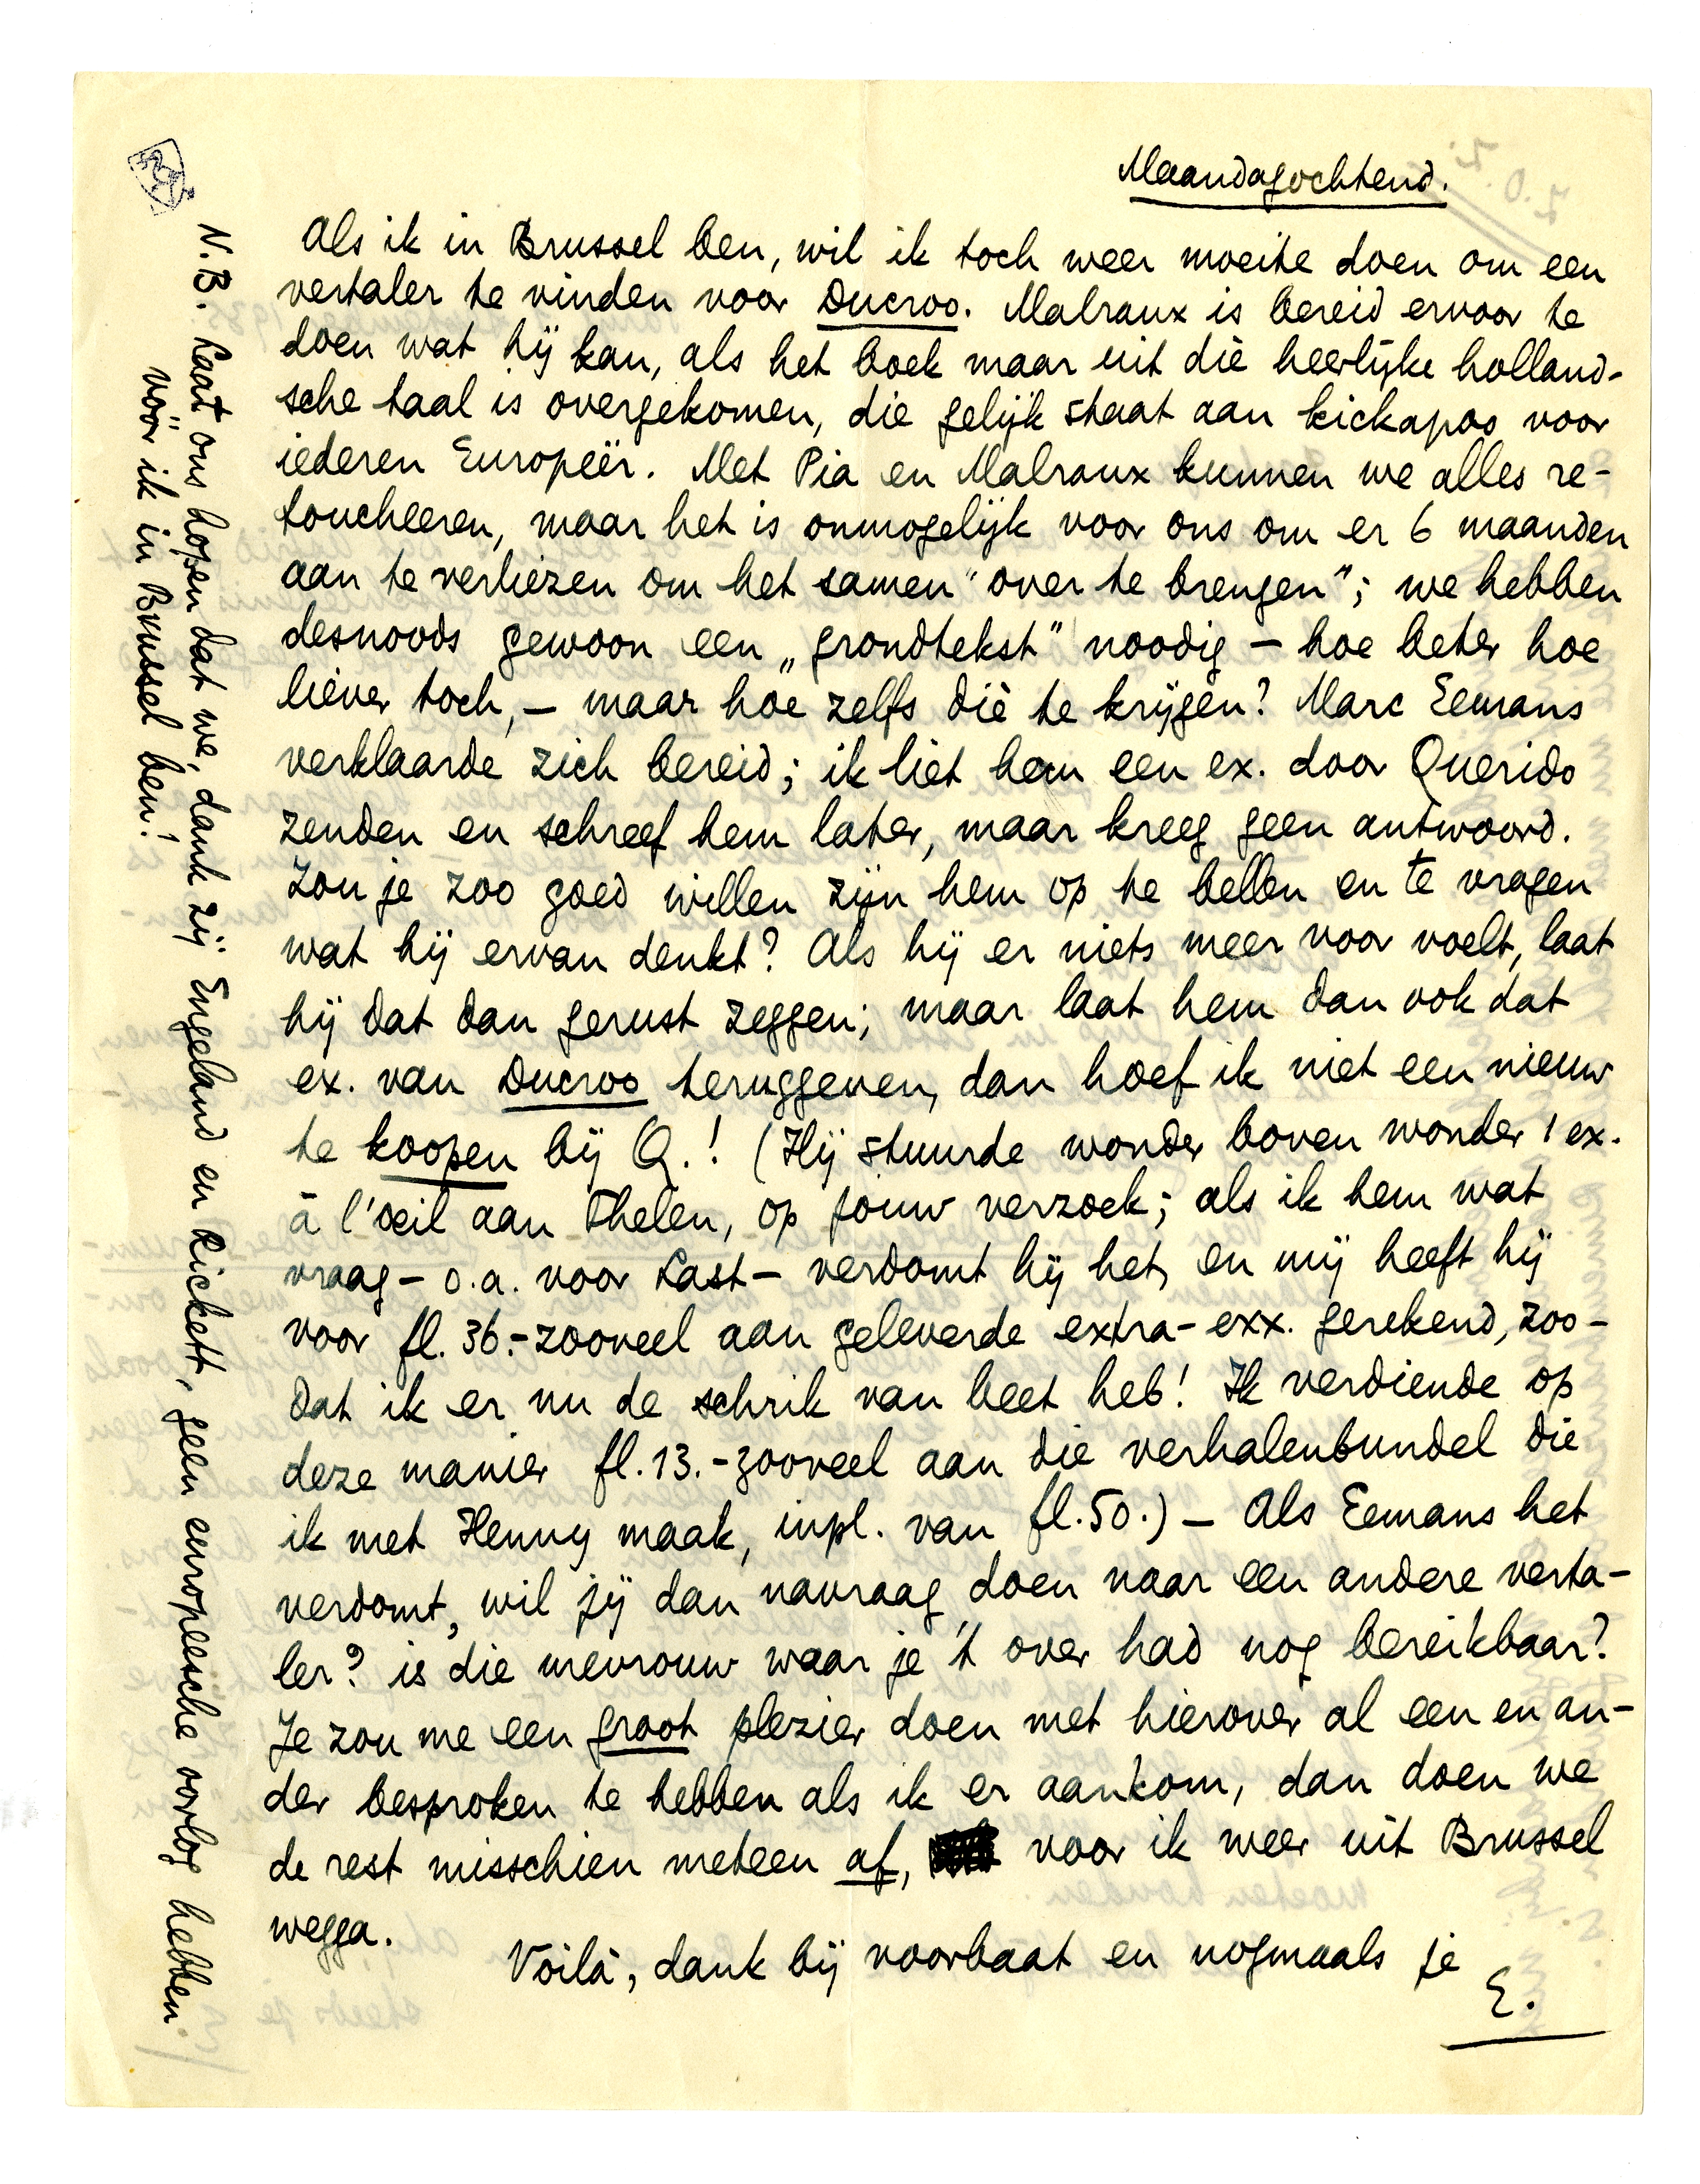 Maandagochtend.
Als ik in Brussel ben, wil ik toch weer moeite doen om een
vertaler te vinden voor Ducroo. Malraux is bereid ervoor te
doen wat hij kan, als het boek maar uit diè heerlijke holland-
sche taal is overgekomen, die gelijk staat aan kickapoo voor
iederen Europeër. Met Pia en Malraux kunnen we alles re-
toucheeren, maar het is onmogelijk voor ons om er 6 maanden
aan te verliezen om het samen "over te brengen"; we hebben
desnoods gewoon een „grondtekst" noodig – hoe beter hoe
liever toch, – maar hoe zelfs diè te krijgen? Marc Eemans
verklaarde zich bereid; ik liet hem een ex. door Querido
zenden en schreef hem later, maar kreeg geen antwoord.
Zou je zoo goed willen zijn hem op te bellen en te vragen
wat hij ervan denkt? Als hij er niets meer voor voelt, laat
hij dat dan gerust zeggen; maar laat hem dan ook dat
ex. van Ducroo teruggeven, dan hoef ik niet een nieuw
te koopen bij Q.! (Hij stuurde wonder boven wonder 1 ex.
à l'oeil aan Thelen, op jouw verzoek; als ik hem wat
vraag – o.a. voor Last – verdomt hij het, en mij heeft hij
voor fl. 36.-zooveel aan geleverde extra-exx. gerekend, zoo-
dat ik er nu de schrik van beet heb! Ik verdiende op
deze manier fl. 13.-zooveel aan die verhalenbundel die
ik met Henny maak, inpl. van fl. 50.) – Als Eemans het
verdomt, wil jij dan navraag doen naar een andere verta-
ler? is die mevrouw waar je 't over had nog bereikbaar?
Je zou me een groot plezier doen met hierover al een en an-
der besproken te hebben als ik er aankom, dan doen we
de rest misschien meteen af, voor ik weer uit Brussel
wegga.
Voilà, dank bij voorbaat en nogmaals je
E.
N.B. Laat ons hopen dat we, dank zij Engeland en Rickett, geen europeesche oorlog hebben
vóór ik in Brussel ben!